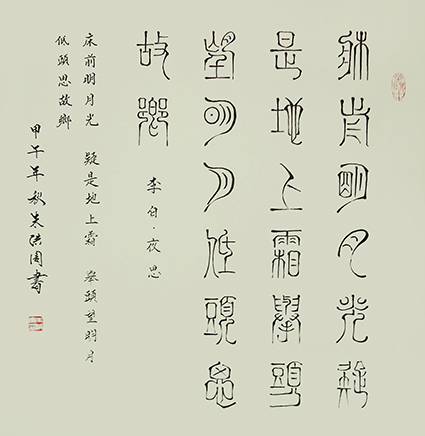 牀前明月光疑
是地上霜舉頭
望明月低頭思
故鄉
李白·夜思
床前明月光 疑是地上霜 举頭望明月
低頭思故鄉
甲午年秋朱洪書